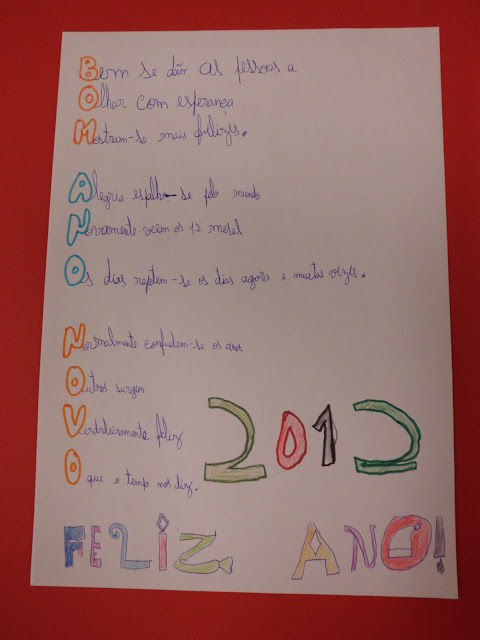 Bem se dão as pessoas a
Olhar com esperança
Mostram-se mais felizes.
Alegria espalha-se pelo mundo
Novamente vêem os 12 meses
Os dias repetem-se os dias agora e muitas vezes.
Normalmente confudem-se os anos
Outros surgem
Verdadeiramente feliz
O que o tempo nos diz.
2012
FELIZ ANO!